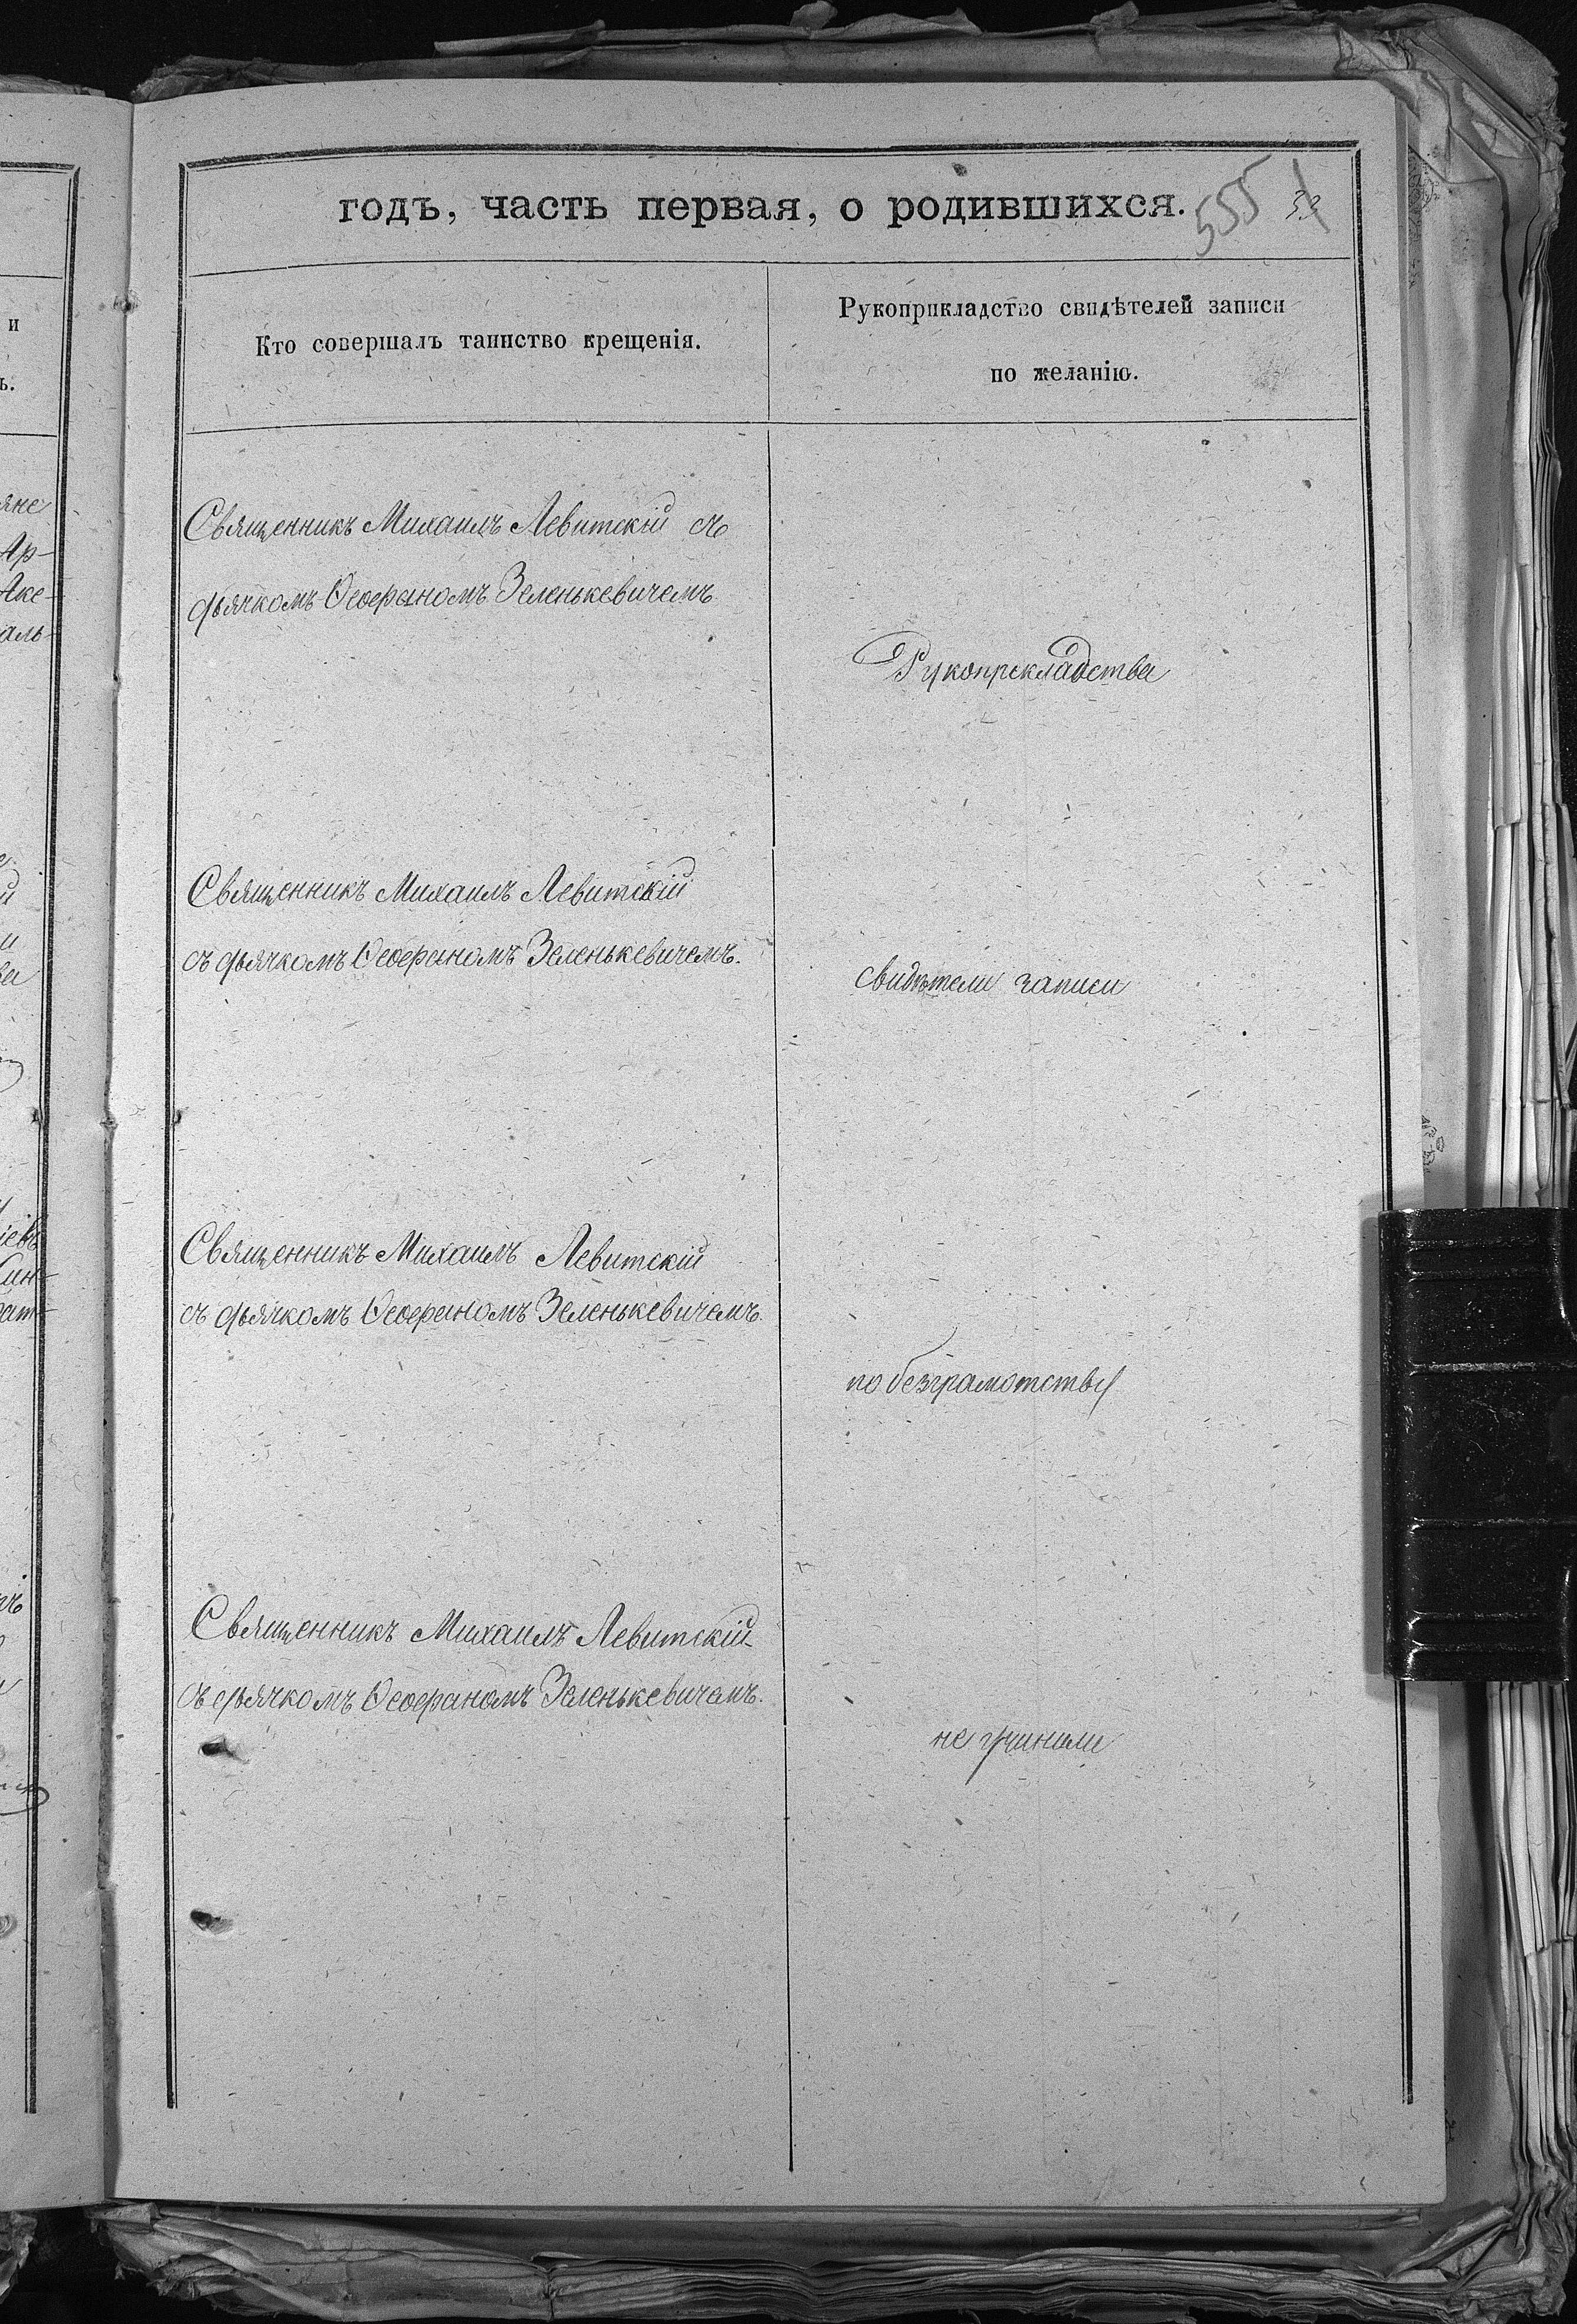 годъ, часть первая, о родившихся.
555 53
и
ъ.
Кто совершалъ таинство крещенія.
Рукоприкладство свидѣтелей записи
по желанію.
яне
Ар-
Аке-
аль-
Священникъ Михаилъ Левитскій съ
дьячкомъ Ѳеофаномъ Зеленькевичемъ
Рукоприкладства
Священникъ Михаилъ Левитскій
съ дьячкомъ Ѳеофаномъ Зеленькевичемъ.
свидѣтели записи
Священникъ Михаилъ Левитскій
съ дьячкомъ Ѳеофаномъ Зеленькевичемъ.
по безграмотству
Священникъ Михаилъ Левитскій
съ дьячкомъ Ѳеофаномъ Зеленькевичемъ.
не учинили